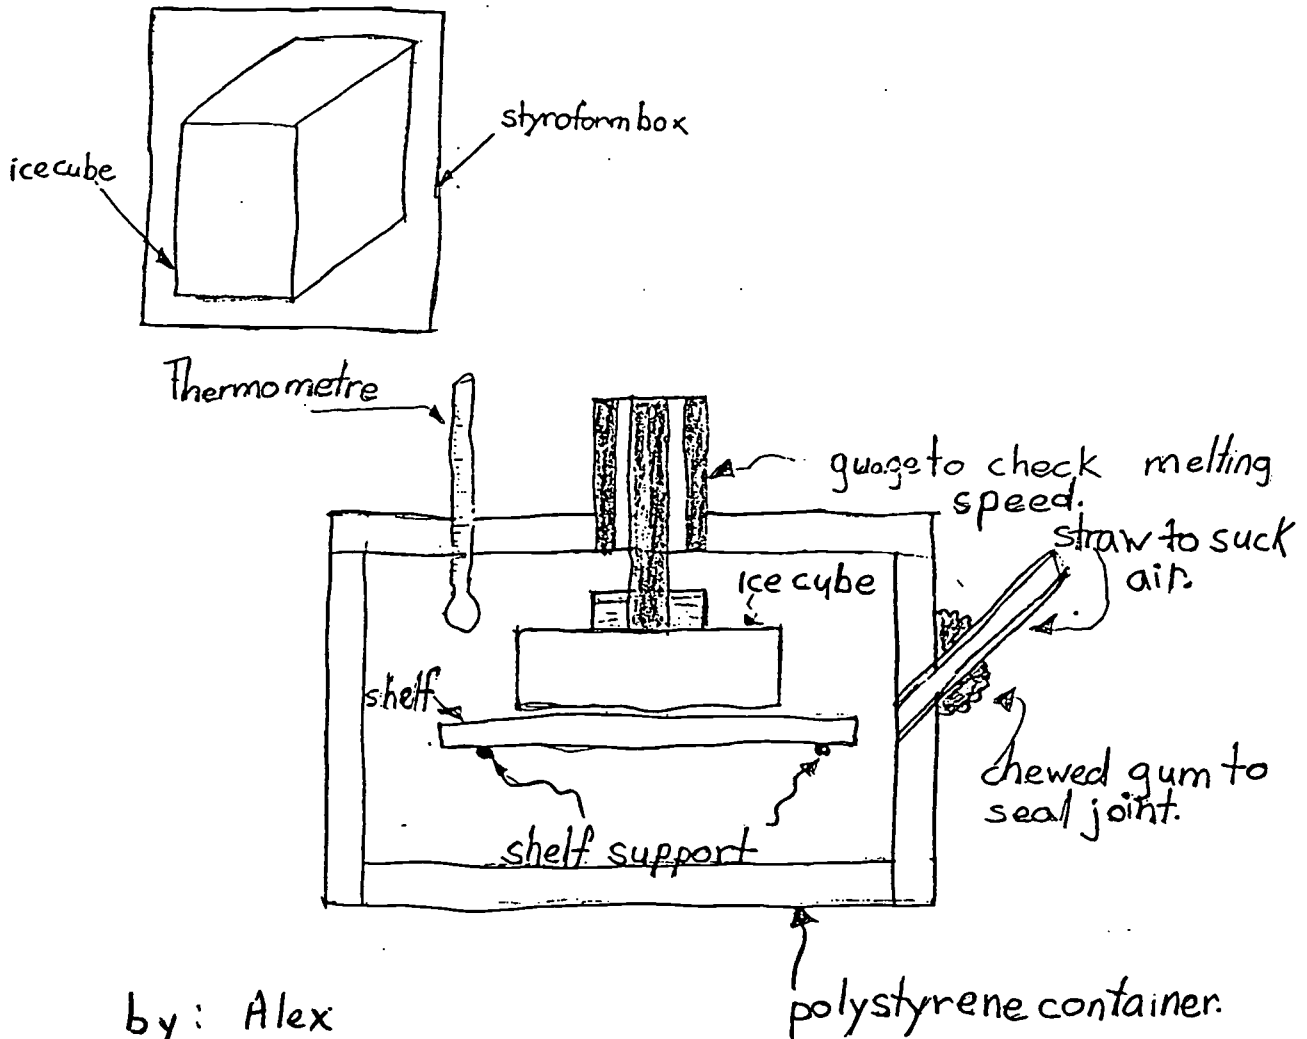 styroform box
ice cube
Thermometre
guage to check melting
speed.
straw to suck
air.
ice cube
shelf
chewed gum to
seal joint.
shelf support
polystyrene container.
by: Alex